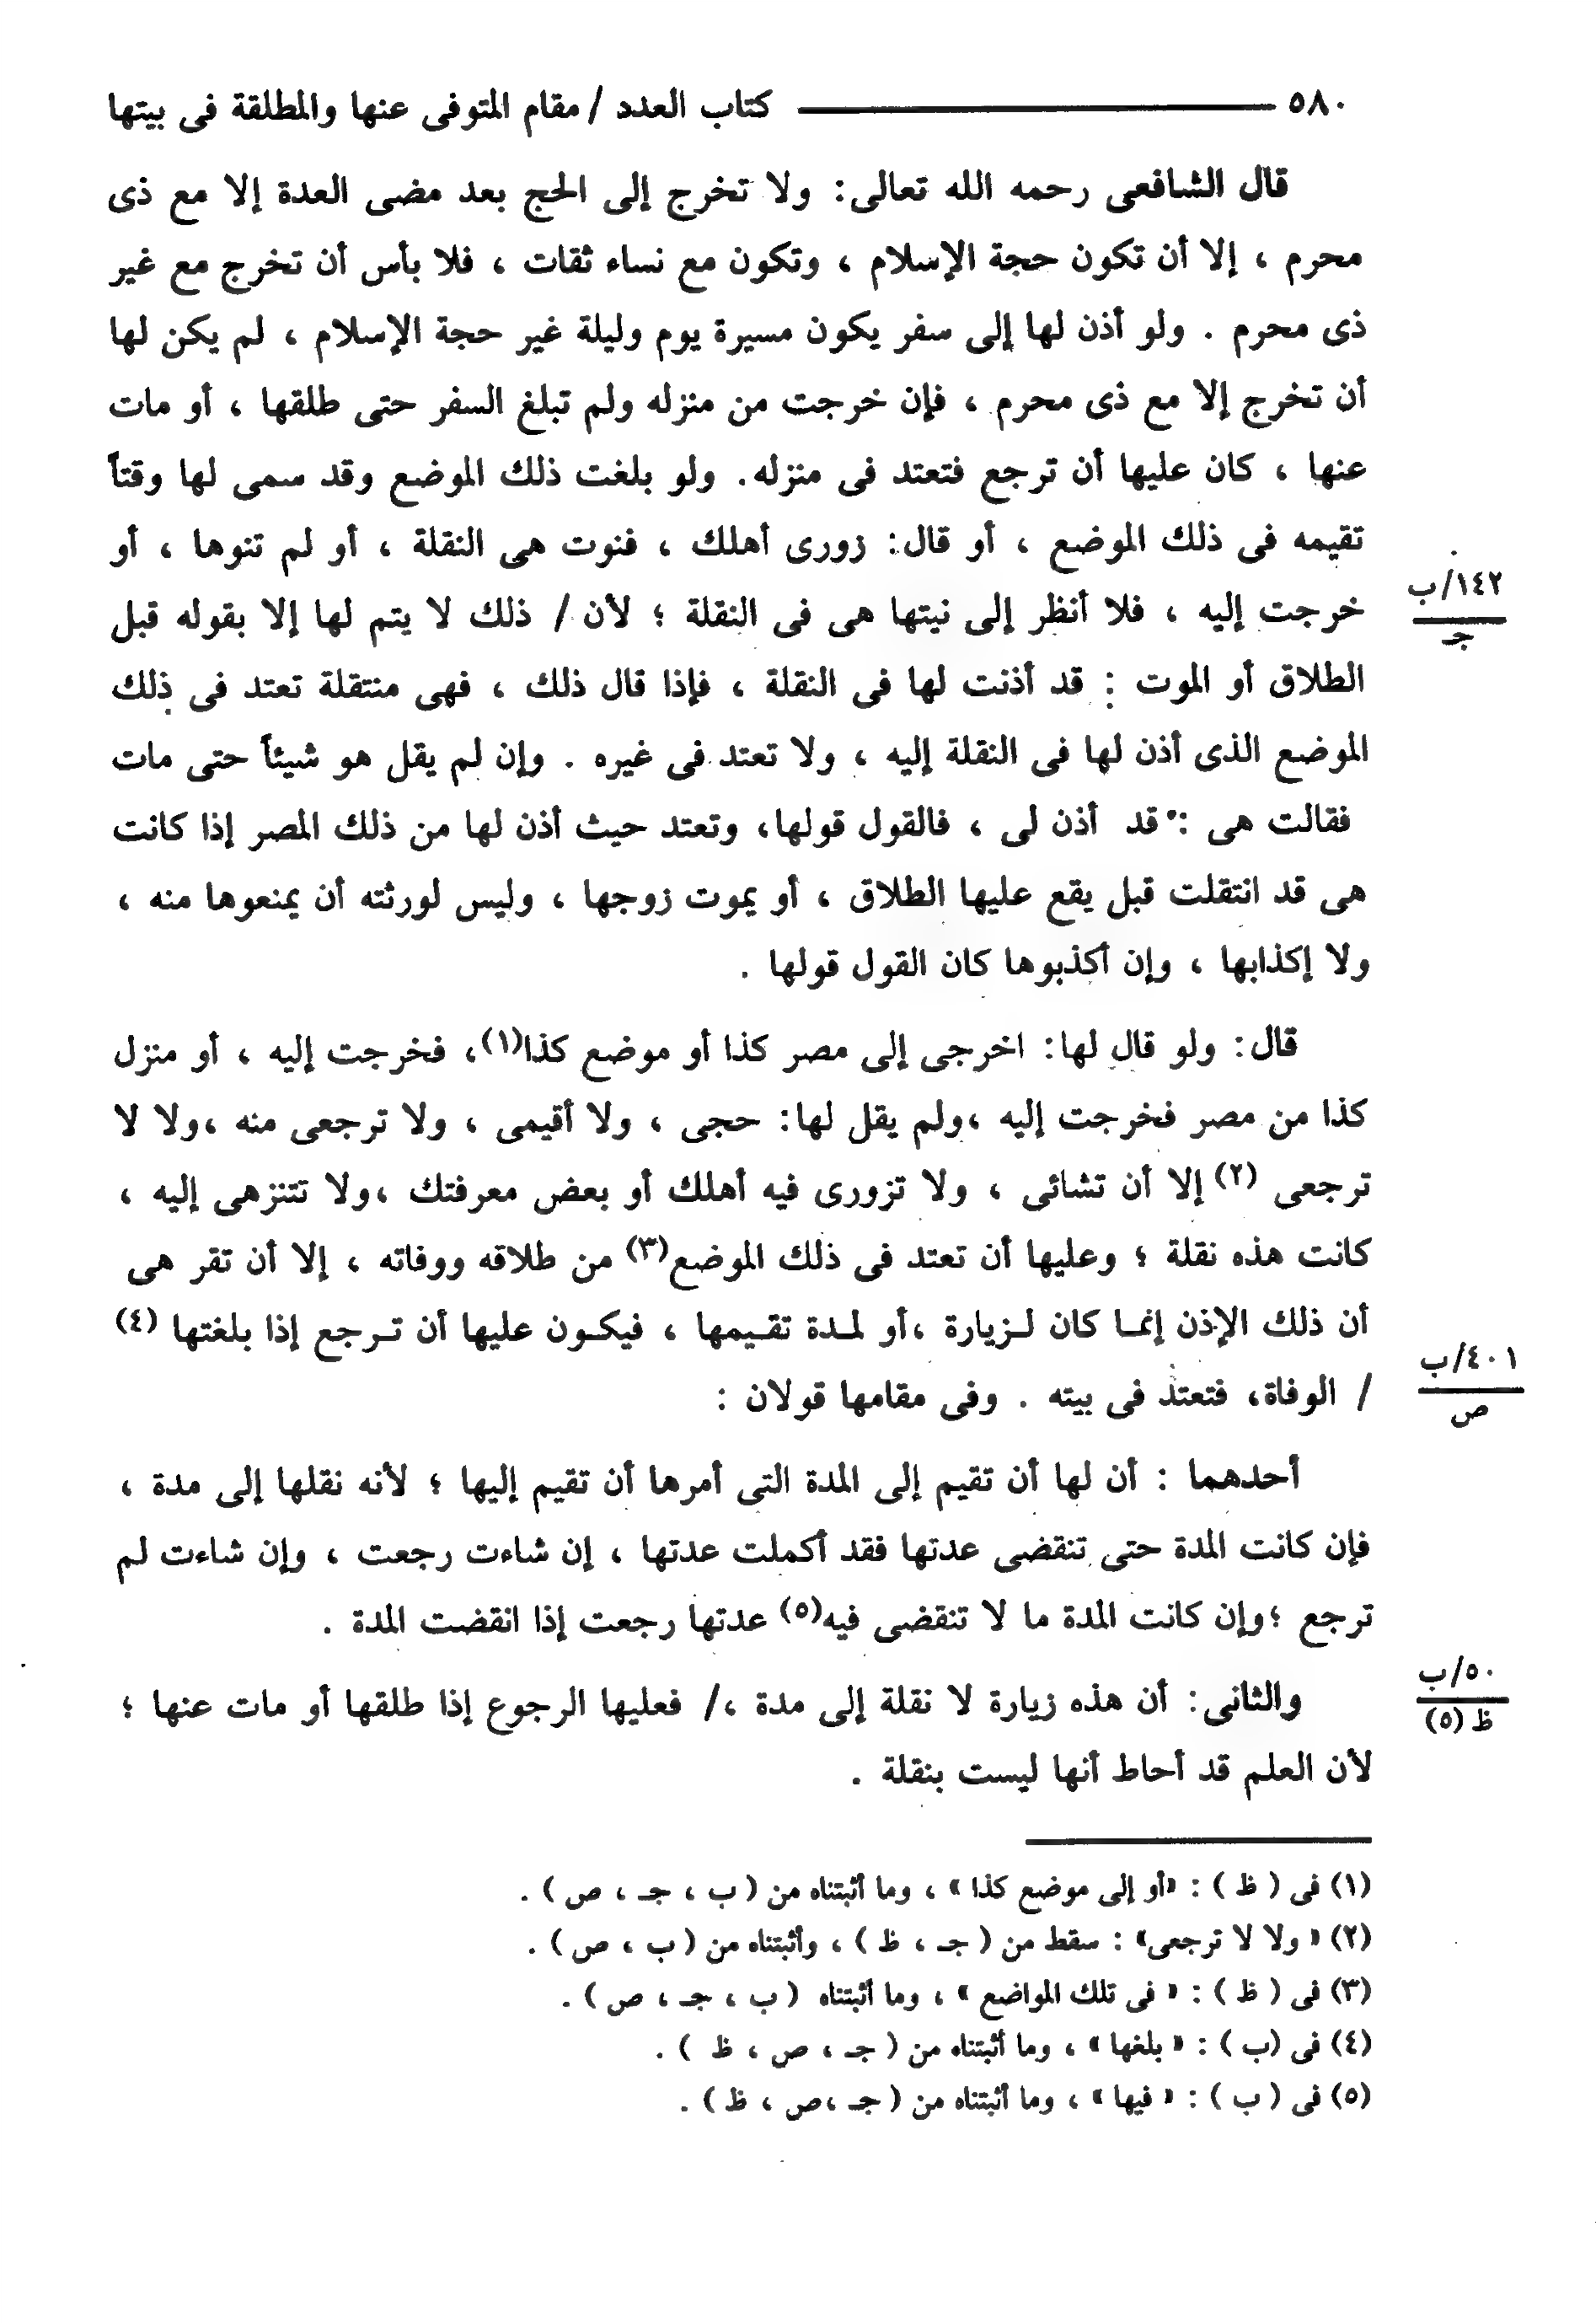 ٥٨٠ ــــــــــــــــــــ كتاب العدد / مقام المتوفى عنها والمطلقة فى بيتها
قال الشافعى رحمه الله تعالى: ولا تخرج إلى الحج بعد مضى العدة إلا مع ذى
محرم ، إلا أن تكون حجة الإسلام ، وتكون مع نساء ثقات ، فلا بأس أن تخرج مع غير
ذى محرم . ولو أذن لها إلى سفر يكون مسيرة يوم وليلة غير حجة الإسلام ، لم يكن لها
أن تخرج إلا مع ذى محرم ، فإن خرجت من منزله ولم تبلغ السفر حتى طلقها ، أو مات
عنها ، كان عليها أن ترجع فتعتد فى منزله. ولو بلغت ذلك الموضع وقد سمى لها وقتاً
تقيمه فى ذلك الموضع ، أو قال: زورى أهلك ، فنوت هى النقلة ، أو لم تنوها ، أو
خرجت إليه ، فلا أنظر إلى نيتها هى فى النقلة ؛ لأن / ذلك لا يتم لها إلا بقوله قبل
١٤٢/ب
جـ
الطلاق أو الموت : قد أذنت لها فى النقلة ، فإذا قال ذلك ، فهى منتقلة تعتد فى ذلك
الموضع الذى أذن لها فى النقلة إليه ، ولا تعتد فى غيره . وإن لم يقل هو شيئاً حتى مات
فقالت هى : قد أذن لى ، فالقول قولها، وتعتد حيث أذن لها من ذلك المصر إذا كانت
هى قد انتقلت قبل يقع عليها الطلاق ، أو يموت زوجها ، وليس لورثته أن يمنعوها منه ،
ولا إكذابها ، وإن أكذبوها كان القول قولها .
قال: ولو قال لها: اخرجى إلى مصر كذا أو موضع كذا(١)، فخرجت إليه ، أو منزل
كذا من مصر فخرجت إليه ،ولم يقل لها: حجى ، ولا أقيمى ، ولا ترجعى منه ،ولا لا
ترجعى (٢) إلا أن تشائى ، ولا تزورى فيه أهلك أو بعض معرفتك ،ولا تتنزهى إليه ،
كانت هذه نقلة ؛ وعليها أن تعتد فى ذلك الموضع(٣) من طلاقه ووفاته ، إلا أن تقر هى
أن ذلك الإذن إنما كان لزيارة ،أو لمدة تقيمها ، فيكون عليها أن ترجع إذا بلغتها (٤)
٤٠١/ب
ص
/ الوفاة، فتعتد فى بيته . وفى مقامها قولان :
أحدهما : أن لها أن تقيم إلى المدة التى أمرها أن تقيم إليها ؛ لأنه نقلها إلى مدة ،
فإن كانت المدة حتى تنقضى عدتها فقد أكملت عدتها ، إن شاءت رجعت ، وإن شاءت لم
ترجع ؛وإن كانت المدة ما لا تنقضى فيه(٥) عدتها رجعت إذا انقضت المدة .
والثانى: أن هذه زيارة لا نقلة إلى مدة ،/ فعليها الرجوع إذا طلقها أو مات عنها ؛
٥٠/ب
ظ (٥)
لأن العلم قد أحاط أنها ليست بنقلة .
(١) فى ( ظ ) : «أو إلى موضع كذا » ، وما أثبتناه من ( ب ، جـ ، ص ) .
(٢) « ولا لا ترجعى» : سقط من ( جـ ، ظ ) ، وأثبتناه من ( ب ، ص ) .
(٣) فى ( ظ ) : « فى تلك المواضع » ، وما أثبتناه ( ب ، جـ ، ص ) .
(٤) فى (ب ) : « بلغها » ، وما أثبتناه من ( جـ ، ص ، ظ ) .
(٥) فى ( ب ) : « فيها » ، وما أثبتناه من ( جـ ،ص ، ظ ) .